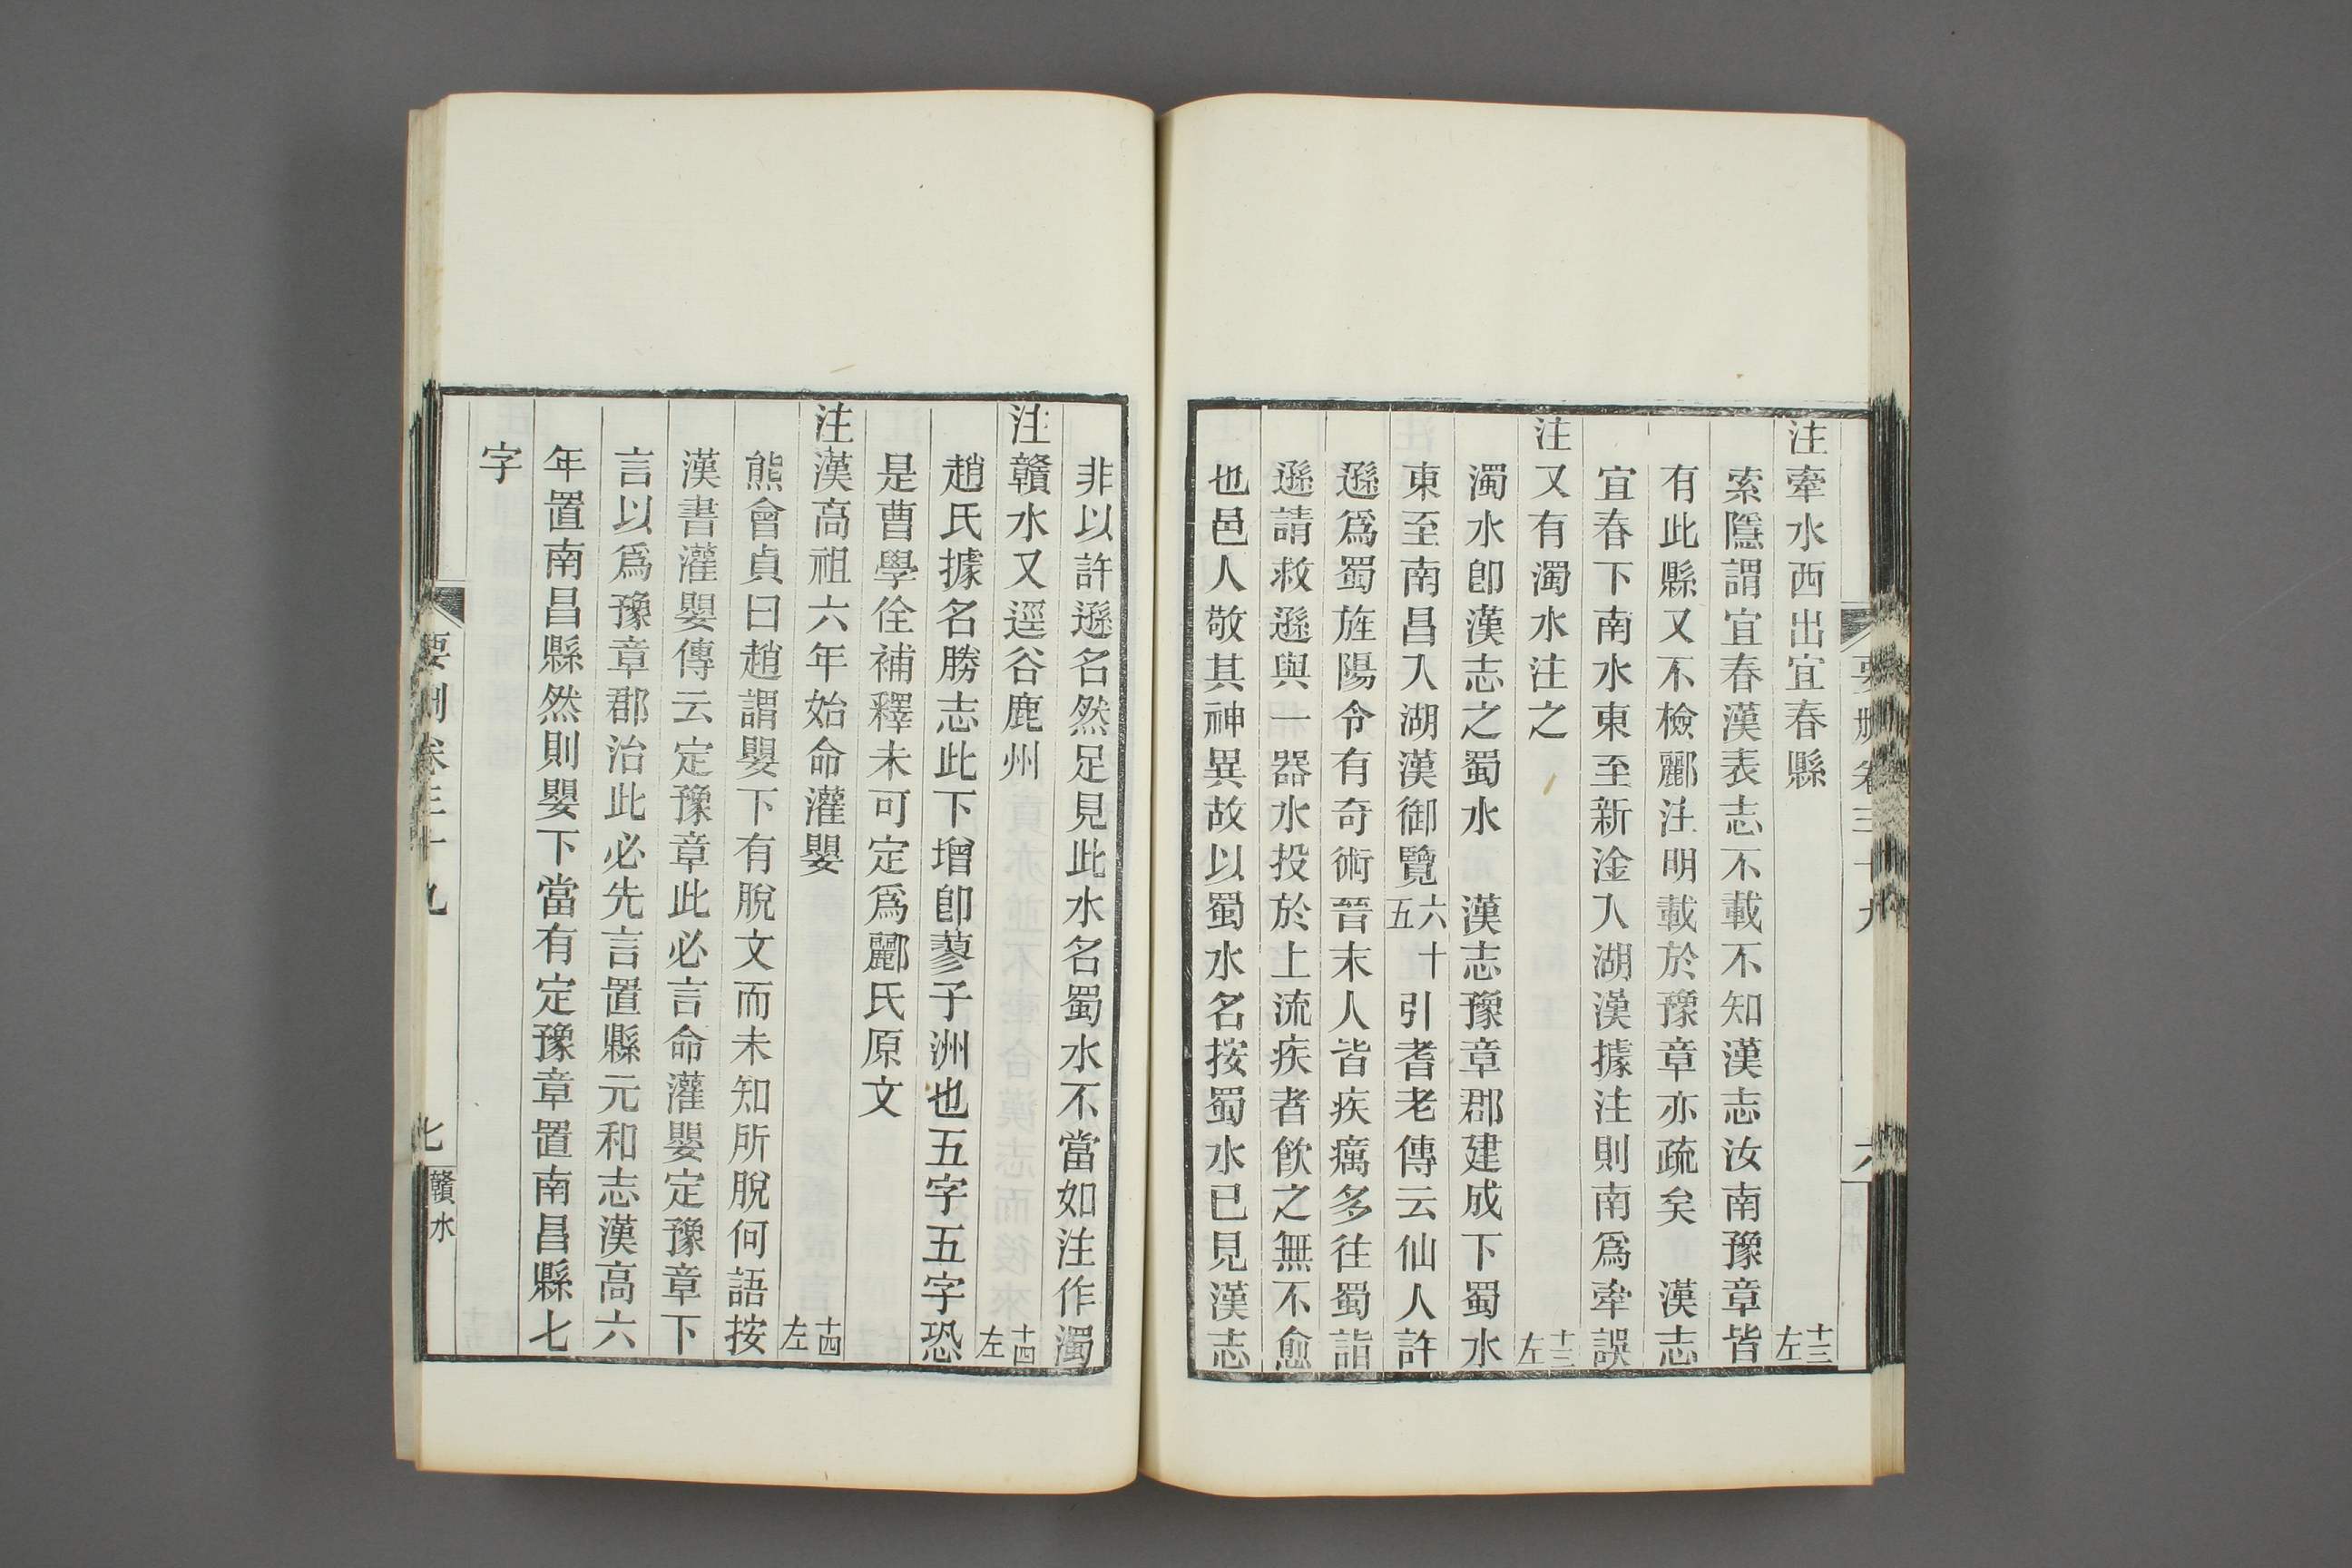 注牽水西出宜春縣 十三左
索隱謂宜春漢表志不載不知漢志汝南豫章皆
有此縣又不檢酈注明載於豫章亦疏矣 漢志
宜春下南水東至新淦入湖漢據注則南爲牽誤
注又有濁水注之 十三左
濁水卽漢志之蜀水 漢志豫章郡建成下蜀水
東至南昌入湖漢御覽六十五引耆老傳云仙人許
遜爲蜀旌陽令有奇術晉末人皆疾癘多往蜀詣
遜請救遜與一器水投於上流疾者飮之無不愈
也邑人敬其神異故以蜀水名按蜀水已見漢志
非以許遜名然足見此水名蜀水不當如注作濁
注贛水又逕谷鹿州 十四左
趙氏據名勝志此下增卽蓼子洲也五字五字恐
是曹學佺補釋未可定爲酈氏原文
注漢高祖六年始命灌嬰 十四左
熊會貞曰趙謂嬰下有脫文而未知所脫何語按
漢書灌嬰傳云定豫章此必言命灌嬰定豫章下
言以爲豫章郡治此必先言置縣元和志漢高六
年置南昌縣然則嬰下當有定豫章置南昌縣七
字
要刪卷三十九 七 贛水